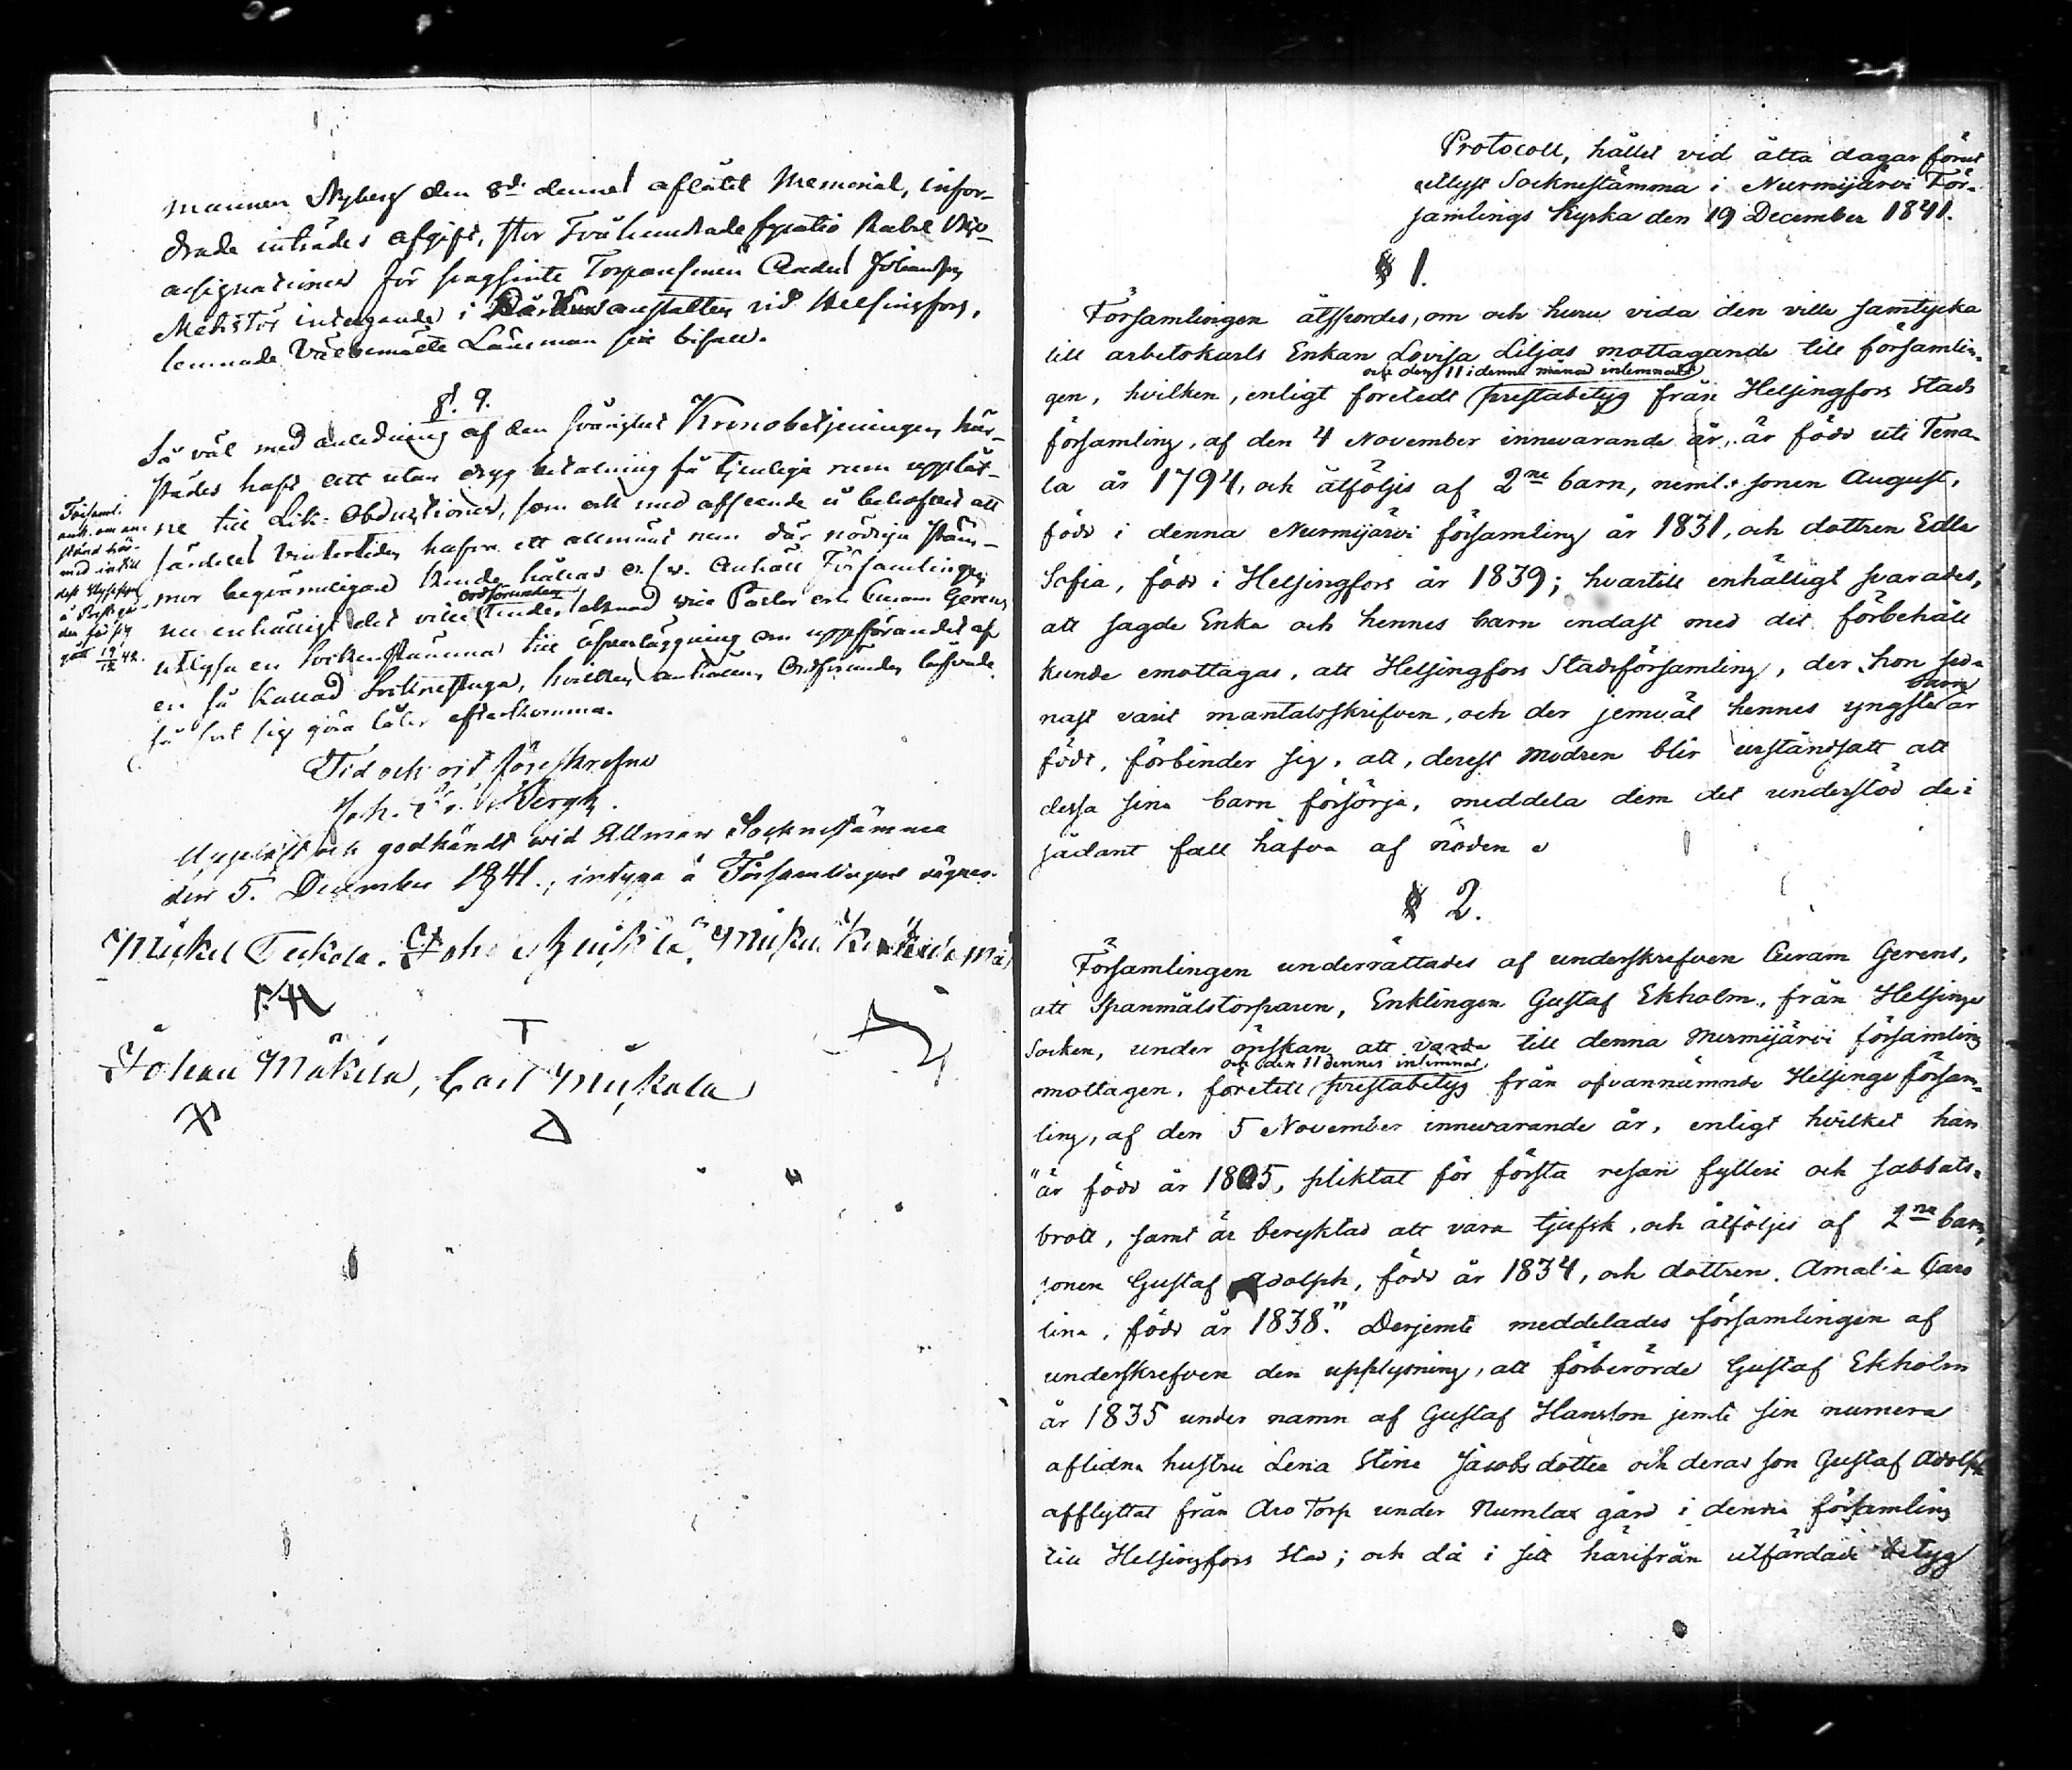 mannen Nyberg den 8de dennes aflåtit Memorial, infor-
drade inträdes afgift, stor Tvåhundrade fyratio Rubel
assignationer för Torparesonen Anders Johansson
intagande i Dårhus anstalten vid Helsingfors,
lemnade Välbemälte Länsman sin bifall.
§. 9.
Så väl med anledning af den svårighet Krono betjeningen här-
städes haft att utan dryg betalning få tjenliga rum upplåt-
ne till Lik-Obductioner, som ock med afseende å behofvet att
särdeles vintertiden hafva ett allmänt rum där nödiga stäm-
mor begvämligare kunde hållas o.s.v. Anhöll Församlingen
nu enhälligt det ville Ordföranden vice Pastor och Curam Gerens
utlysa en Sockenstämma till öfverläggning om uppförandet af
en så kallad Socknestuga, hvilken anhållan Ordföranden lofvade
så fort sig göra låter efterkomma.
Församl.
anh. om an-
stånd här-
med intill
dess
19/12 42.
Tid och ort förskrefne
Joh. Bergh.
Uppläst och godkändt vid Allmän Socknestämma
den 5. December 1841., intyga å Församlingens vägnar.
Mickel Teckola. Johan
Johan Mäkilä, Carl Mickola
Protocoll, hållet vid åtta dagar förut
utlyst Socknestämma i Nurmijärvi För-
samlings Kyrka den 19 December 1841.
§ 1.
Församlingen åtspordes, om och huru vida den ville samtycka
till arbetskarls Enkan Lovisa Liljas mottagande till församlin-
och den 11 i denna månad inlemnadt
gen, hvilken, enligt foretedt prestabetyg från Helsingfors Stads
församling, af den 4 November innevarande år, är född uti Tena-
la år 1794, och åtföljes af 2ne barn, neml. sonen August,
född i denna Nurmijärvi församling år 1831, och dottren Edla
Sofia, född i Helsingfors år 1839; hvartill enhälligt svarades,
att sagde Enka och hennes barn endast med det förbehåll
kunde emottagas, att Helsingfors Stadsförsamling, der hon seda
barn
nast varit mantalsskrifven, och der jemväl hennes yngsta är
född, förbinder sig, att, derest modren blir urståndsatt att
dessa sina barn försörja, meddela dem det understöd de i
sådant fall hafva af nöden.
§ 2.
Församlingen underrättades af underskrefven Curam Gerens,
att Spanmålstorparen, Enklingen Gustaf Ekholm, från Helsinge
Socken, under önskan att varda till denna Nurmijärvi församling
och den 11 dennes inlemnat
mottagen, företett prestabetyg från ofvannämnde Helsinge försam-
ling, af den 5 November innevarande år, enligt hvilket han
"är född år 1805, pliktat för första resan fylleri och sabbats-
brott, samt är beryktad att vara tjufsk, och åtföljes af 2ne barn,
sonen Gustaf Adolph, född år 1834, och dottren Amalia Caro
lina, född år 1838." Derjemte meddelades församlingen af
underskrefven den upplysning, att förberörde Gustaf Ekholm
år 1835 under namn af Gustaf Hansson jemte sin numera
aflidna hustru Lena Stina Jacobsdotter och deras son Gustaf Adolph
afflyttat från Aro Torp under Numlax gård i denna församling
till Helsingfors Stad; och då i sitt härifrån utfärdade betyg